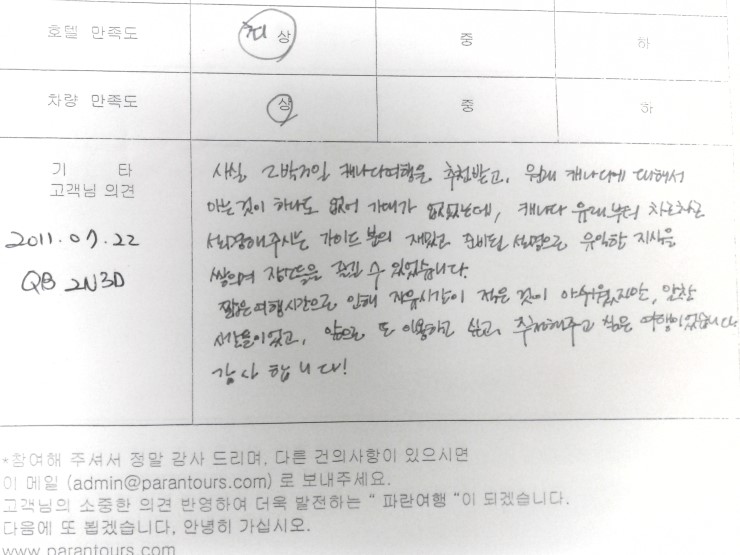 호텔 만족도 최상 중 하
차량 만족도 상 중 하
기 타
고객님 의견
2011.07.22
QB 2N3D
사실 2박3일 캐나다여행을 추천받고, 원래 캐나다에 대해서
아는것이 하나도 없어 기대가 없었는데, 캐나다 유래부터 차근차근
설명해주시는 가이드 분의 재밌고 준비된 설명으로 유익한 지식을
쌓으며 을 즐길 수 있었습니다.
짧은 여행시간으로 인해 자유시간이 적은 것이 아쉬웠지만, 알찬
시간들이었고, 앞으로 또 이용하고 싶고, 추천해주고 싶은 여행이었습니다
감사 합니다!
*참여해 주셔서 정말 감사 드리며, 다른 건의사항이 있으시면
이 메일 (admin@parantours.com) 로 보내주세요.
고객님의 소중한 의견 반영하여 더욱 발전하는 “ 파란여행 “이 되겠습니다.
다음에 또 뵙겠습니다, 안녕히 가십시오.
www.parantours.com